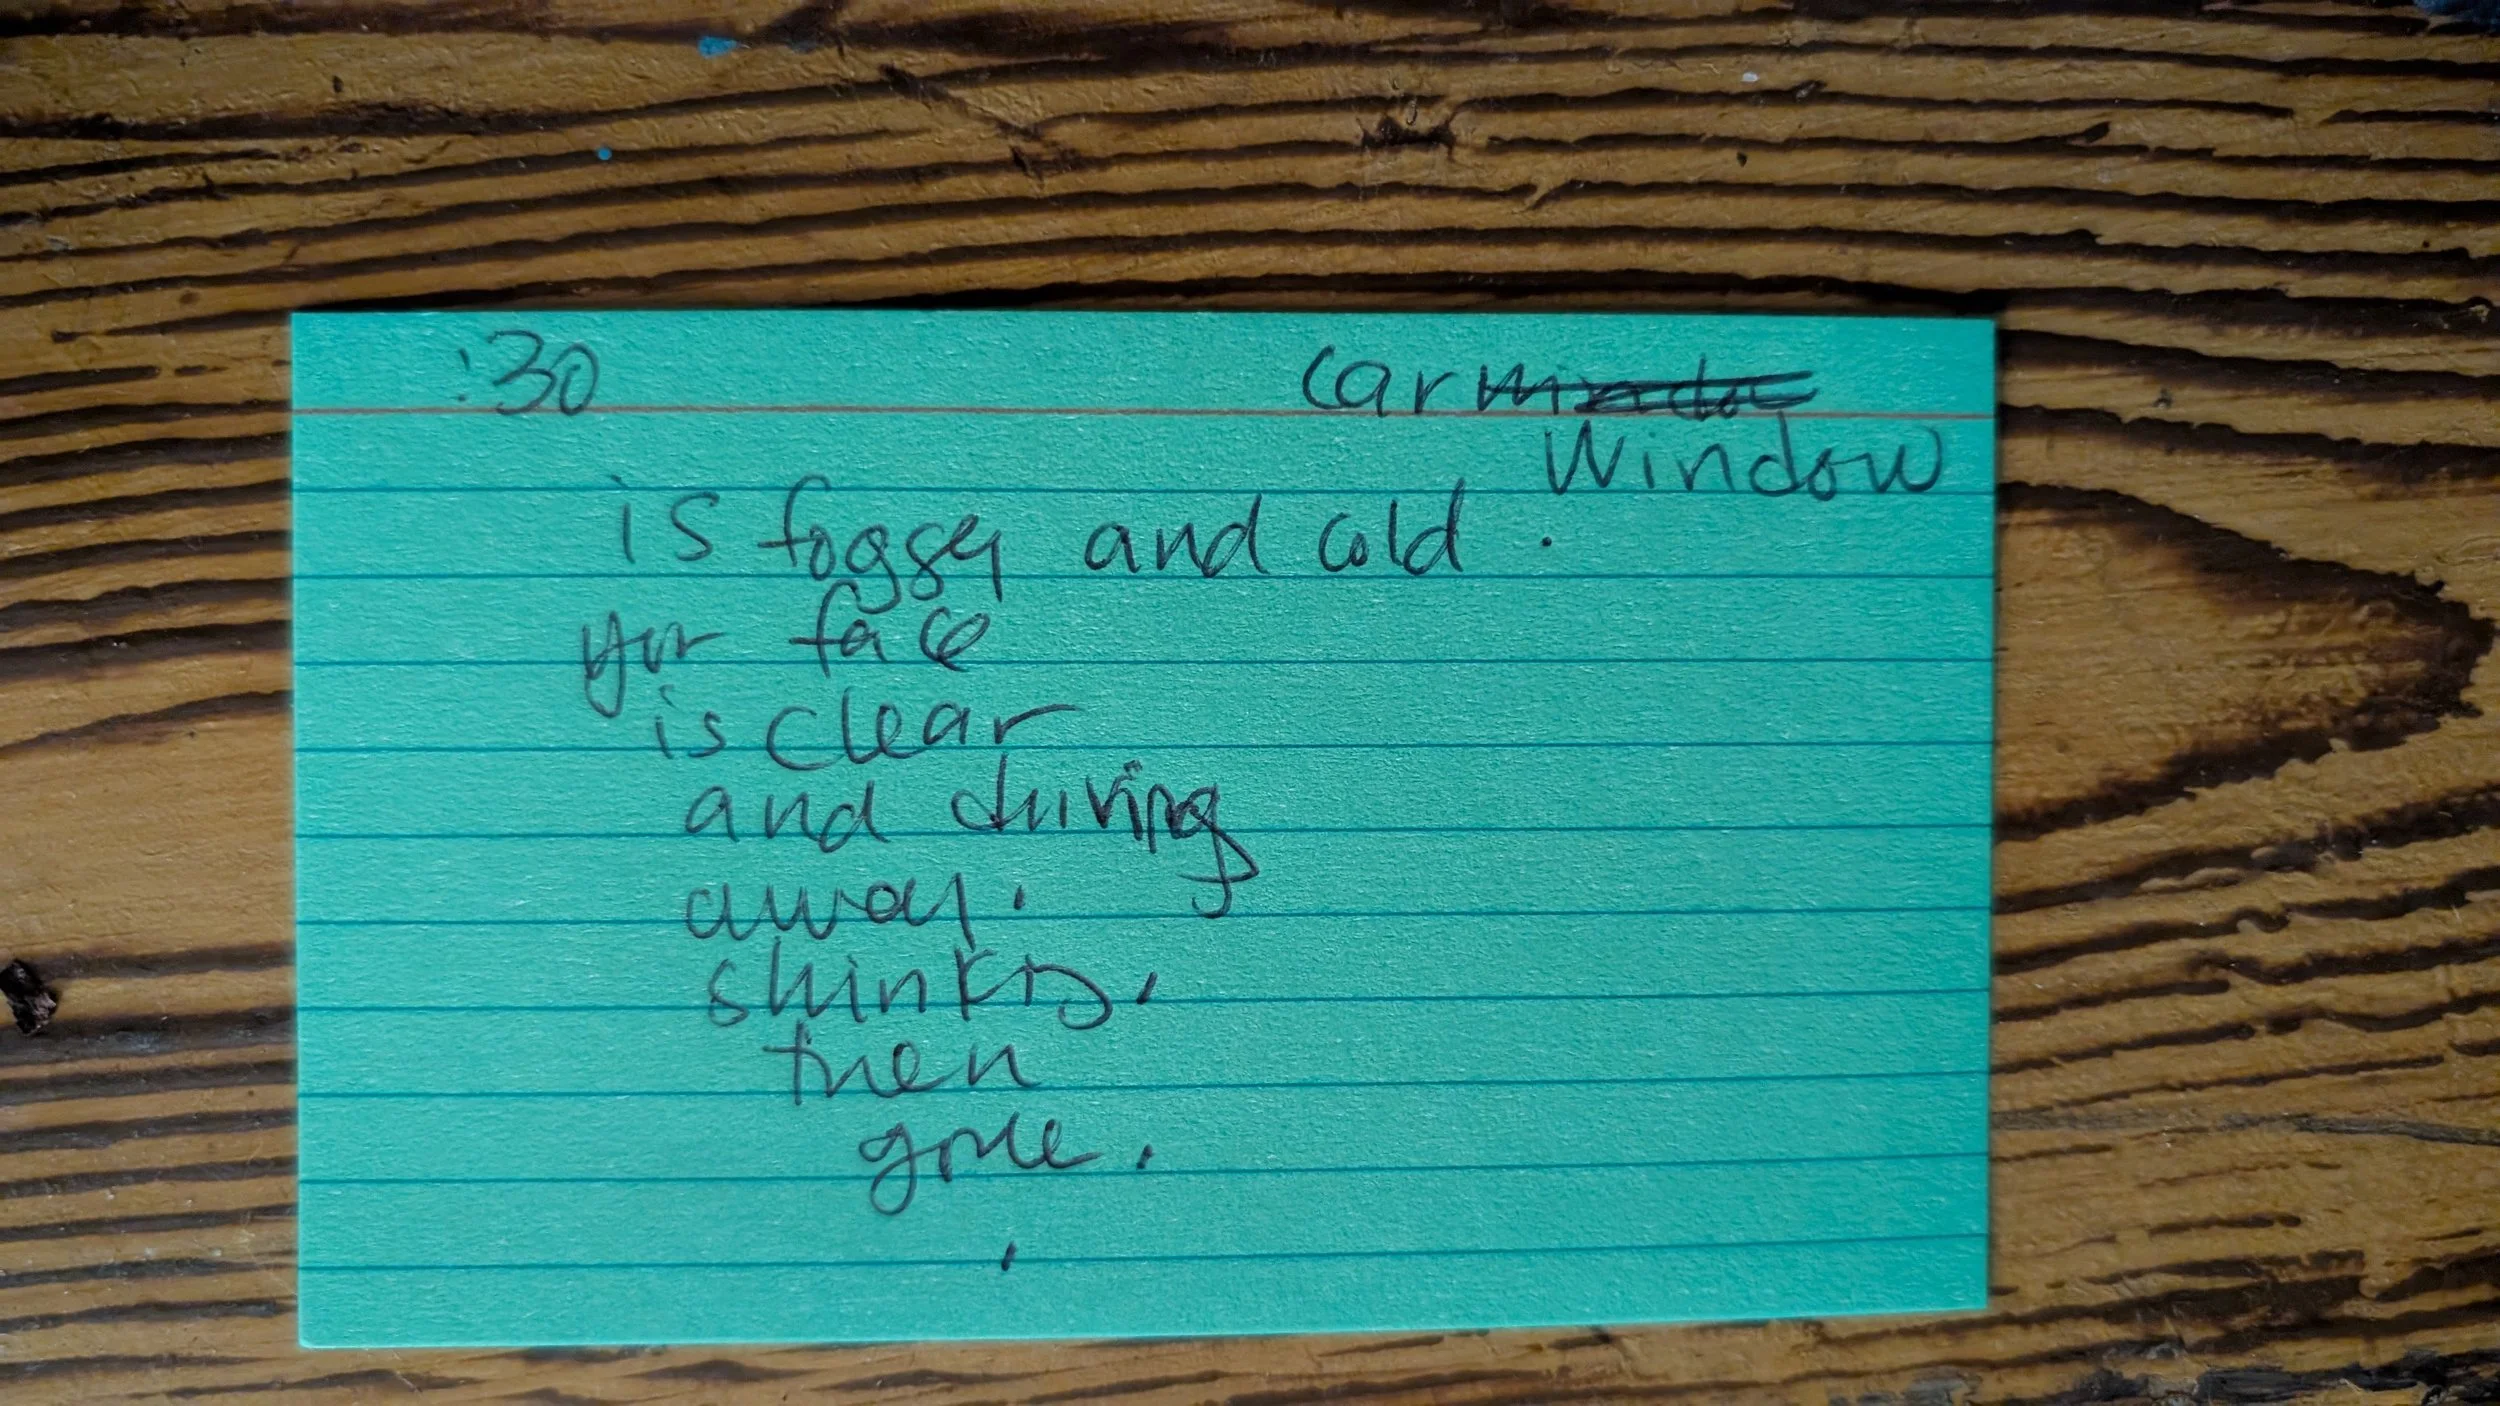 :30 Car
Window
is foggy and cold.
your face
is clear
and driving
away.
shinks,
then
gone.